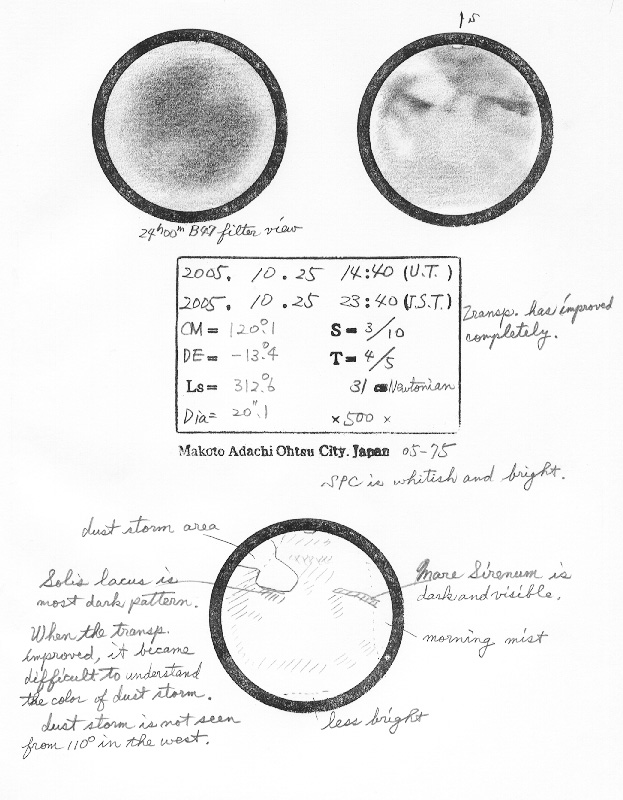 24ʰ00ᵐ B47 filter view
2005. 10.25 14:40 (U.T.)
2005. 10.25 23:40 (J.S.T.)
CM= 120°.1 S= 3/10
DE= -13°.4 T= 4/5
Ls= 312°.6 31 cm Newtonian
Dia= 20".1 ×500 ×
Transp. has improved
completely.
Makoto Adachi Ohtsu City. Japan 05-75
SPC is whitish and bright.
dust storm area
Solis lacus is
most dark pattern.
When the transp.
improved, it became
difficult to understand
the color of dust storm.
dust storm is not seen
from 110° in the west.
Mare Sirenum is
dark and visible.
morning mist
less bright